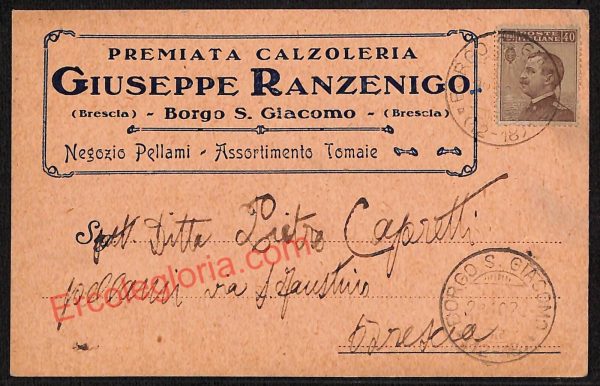 PREMIATA CALZOLERIA
GIUSEPPE RANZENIGO
(Brescia) - Borgo S. Giacomo - (Brescia)
Negozio Pellami - Assortimento Tomaie
POSTE ITALIANE 40
Spett. Ditta Pietro Capretti
pellami via S. Faustino
Brescia
BORGO S. GIACOMO
Ercolegloria.com